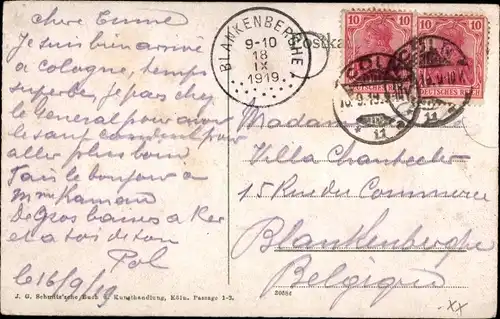 chère Emme
Je suis bien arrivé
a cologne, temps
superbe, je pas chez
le General pour avoir
le sauf conduit pour
aller plus loin
fais le bonjour a
Mme
De gros baises a
et a toi de ton
Pol
le 16/9/19
J. G. Schmitz'sche Buch & Kunsthandlung, Köln. Passage 1-3.
BLANKENBERGHE
9-10
18
IX
1919
Postka
10 10
DEUTSCHES REICH
CÖLN
16.9.19.
11
Madame
Villa Chantecler
15 Rue du Commerce
Blankenberghe
Belgique
XX